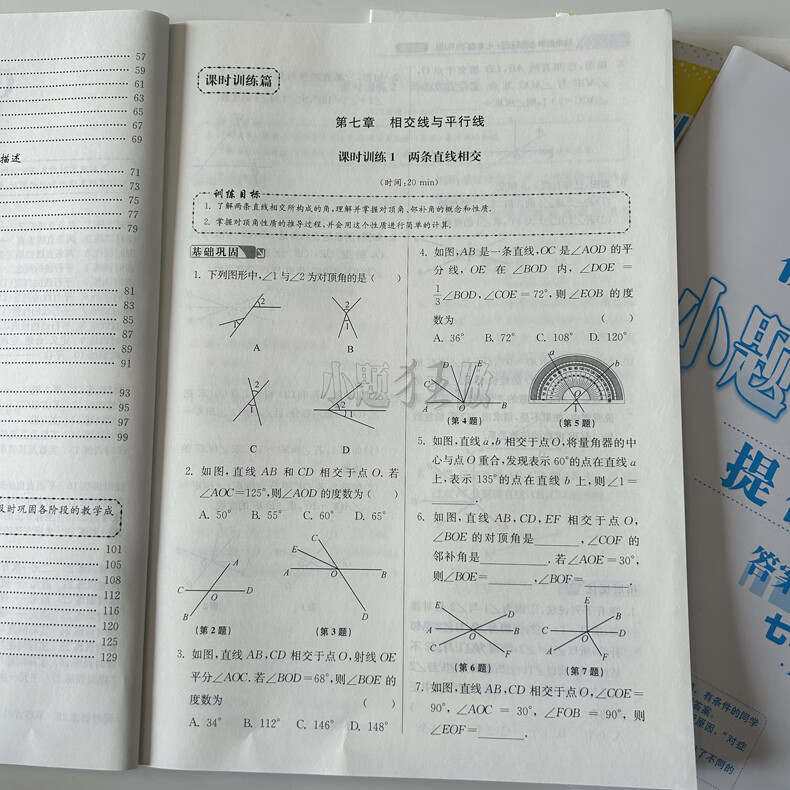 57
59
61
63
65
67
69
描述
71
73
75
77
79
81
83
85
87
89
91
93
95
97
99
及时巩固各阶段的教学成
101
105
108
112
116
120
125
129
课时训练篇
第七章 相交线与平行线
课时训练1 两条直线相交
(时间:20 min)
训练目标
1. 了解两条直线相交所构成的角,理解并掌握对顶角、邻补角的概念和性质.
2. 掌握对顶角性质的推导过程,并会用这个性质进行简单的计算.
基础巩固
1. 下列图形中,∠1与∠2为对顶角的是( )
2
1
A
2
1
B
2
1
C
2
1
D
2. 如图,直线 AB 和 CD 相交于点 O. 若
∠AOC=125°,则∠AOD 的度数为( )
A. 50° B. 55° C. 60° D. 65°
A
C O D
B
(第2题)
C
E
A O B
D
(第3题)
3. 如图,直线 AB,CD 相交于点 O,射线 OE
平分∠AOC. 若∠BOD=68°,则∠BOE 的
度数为 ( )
A. 34° B. 112° C. 146° D. 148°
4. 如图,AB 是一条直线,OC 是∠AOD 的平
分线, OE 在 ∠BOD 内, ∠DOE =
1/3∠BOD,∠COE=72°,则∠EOB 的度
数为 ( )
A. 36° B. 72° C. 108° D. 120°
小题狂做
D E
C
A O B
(第4题)
a b
O
1
(第5题)
5. 如图,直线 a,b 相交于点 O,将量角器的中
心与点 O 重合,发现表示 60°的点在直线 a
上,表示 135°的点在直线 b 上,则∠1=
______.
6. 如图,直线 AB,CD,EF 相交于点 O,
∠BOE 的对顶角是______,∠COF 的
邻补角是______. 若∠AOE=30°,
则∠BOE=______,∠BOF=______.
E D
A O B
C F
(第6题)
E B
C O D
A F
(第7题)
7. 如图,直线 AB,CD 相交于点 O,∠COE=
90°, ∠AOC = 30°, ∠FOB = 90°, 则
∠EOF=______.
小题
提
答案
七
有条件的同学
答案。
原因,“对症
了不同的